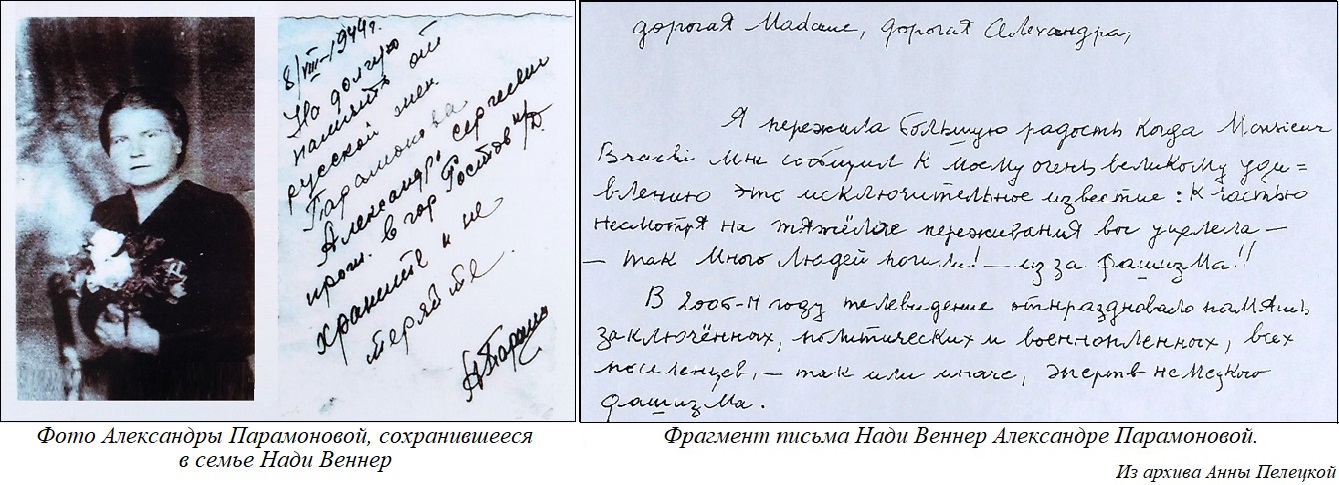 8/VIII-1944г.
На долгую
память от
русской жен.
Парамонова
Александр. Сергеевн
прож. в гор Ростов н/Д.
храните и не
теряйте
АПарамо
Фото Александры Парамоновой, сохранившееся
в семье Нади Веннер
дорогая Madame, дорогая Александра,
Я пережила большую радость когда Monsieur
мне сообщил к моему очень великому уди=
влению это исключительное известие: к частью
несмотря на тяжёлые переживания вы уцелела —
— так много людей погибли! — из за фашизма!!
В 2005-м году телевидение отпраздновало память
заключённых, политических и военнопленных, всех
, — так или иначе, жертв немецкого
фашизма.
Фрагмент письма Нади Веннер Александре Парамоновой.
Из архива Анны Пелецкой